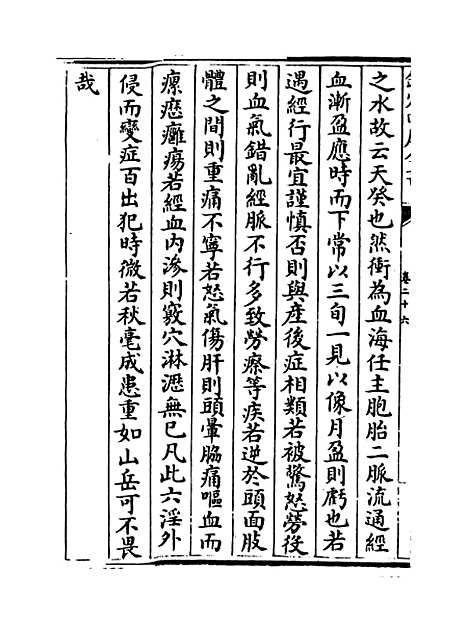 卷二十六
之水故云天癸也然衝為血海任主胞胎二脈流通經
血漸盈應時而下常以三旬一見以像月盈則虧也若
遇經行最宜謹慎否則與産後症相類若被驚怒勞役
則血氣錯亂經脈不行多致勞瘵等疾若逆於頭面肢
體之間則重痛不寧若怒氣傷肝則頭暈脇痛嘔血而
瘰癧癰瘍若經血内滲則竅穴淋瀝無已凡此六淫外
侵而變症百出犯時微若秋毫成患重如山岳可不畏
哉